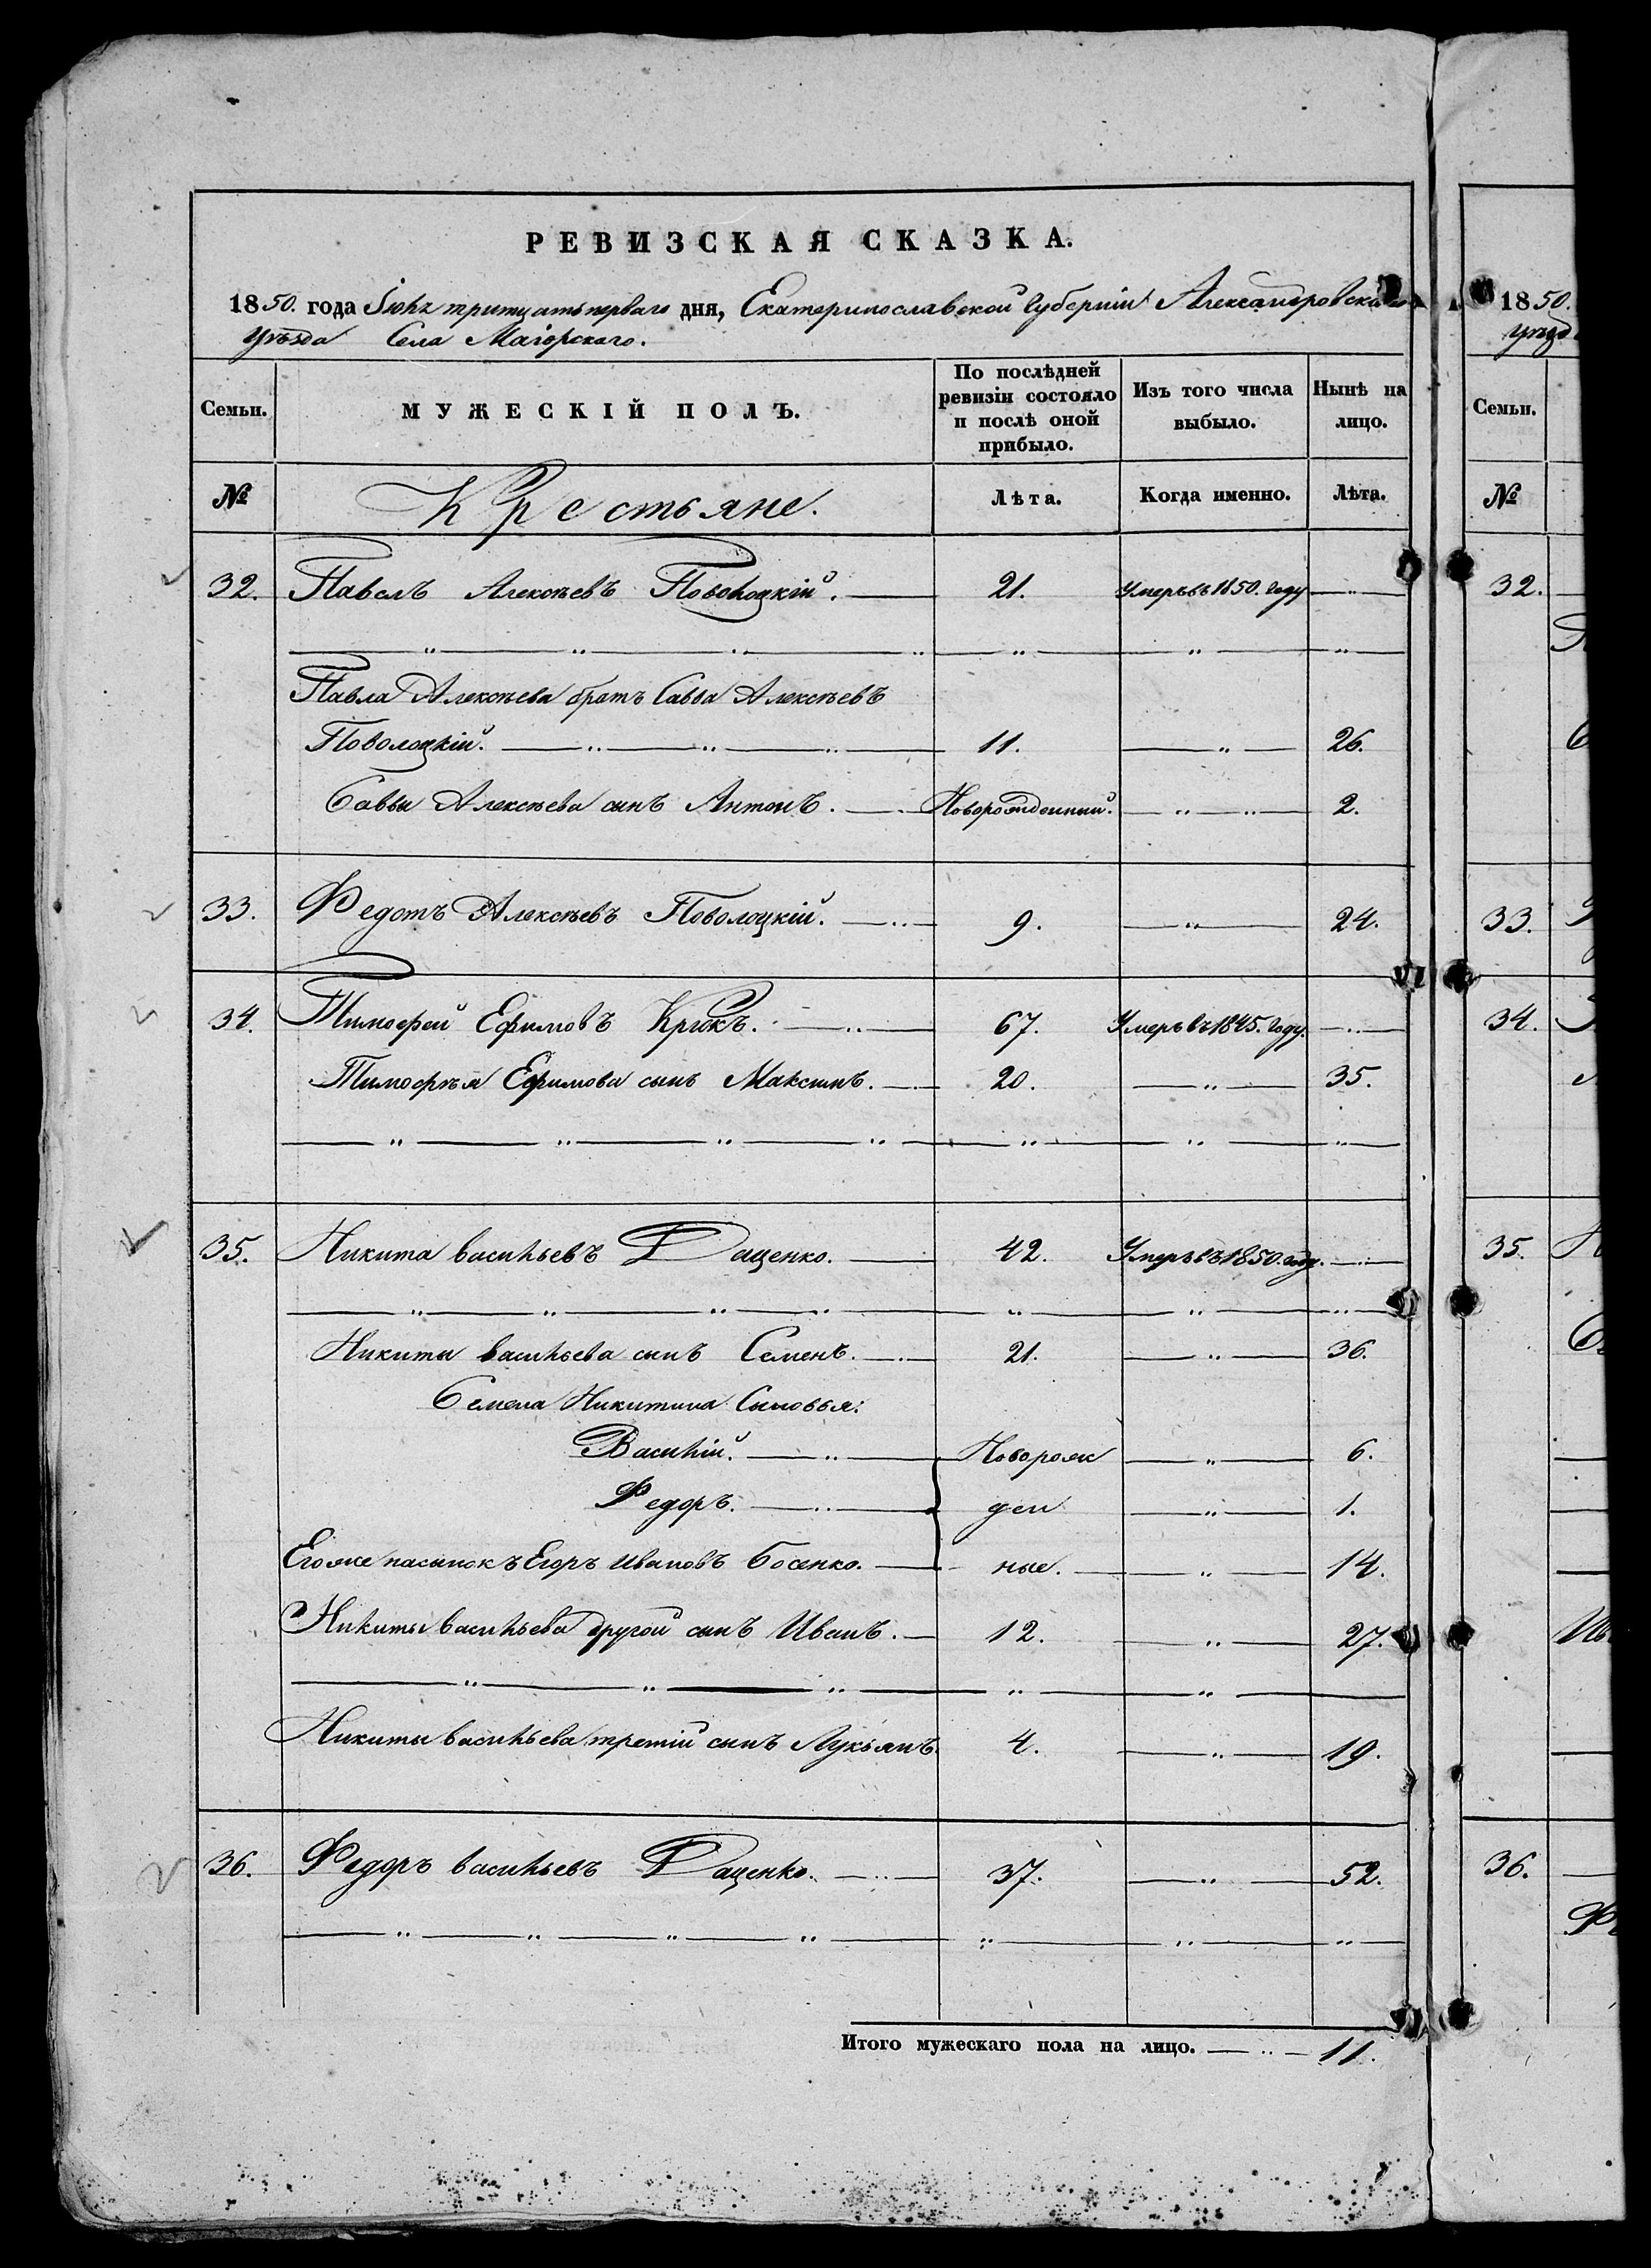 РЕВИЗСКАЯ СКАЗКА.
1850. года Іюля тритцать перваго дня, Екатеринославской Губерніи Александровскаго
уѣзда Села Маіорскаго.
Семьи. МУЖЕСКІЙ ПОЛЪ. По послѣдней ревизіи состояло и послѣ оной прибыло. Изъ того числа выбыло. Нынѣ на лицо.
№ Крестьяне. Лѣта. Когда именно. Лѣта.
32. Павелъ Алексѣевъ Поволоцкій. 21. Умеръ въ 1850. году
Павла Алексѣева братъ Савва Алексѣевъ
Поволоцкій. 11. 26.
Саввы Алексѣева сынъ Антонъ. Новорожденный. 2.
33. Федотъ Алексѣевъ Поволоцкій. 9. 24.
34. Тимофей Ефимовъ Крюкъ. 67. Умеръ въ 1845. году.
Тимофѣя Ефимова сынъ Максимъ. 20. 35.
35. Никита Васильевъ Даценко. 42. Умеръ въ 1850. году.
Никиты Васильева сынъ Семенъ. 21. 36.
Семена Никитина Сыновья:
Василій. Новорож 6.
Федоръ. ден 1.
Егоже пасынокъ Егоръ Ивановъ Босенко. ные. 14.
Никиты Васильева другой сынъ Иванъ. 12. 27.
Никиты Васильева третій сынъ Лукьянъ. 4. 19.
36. Федоръ Васильевъ Даценко. 37. 52.
Итого мужескаго пола на лицо. 11.
1850.
уѣзд
Семьи.
№
32.
33.
34.
35.
36.